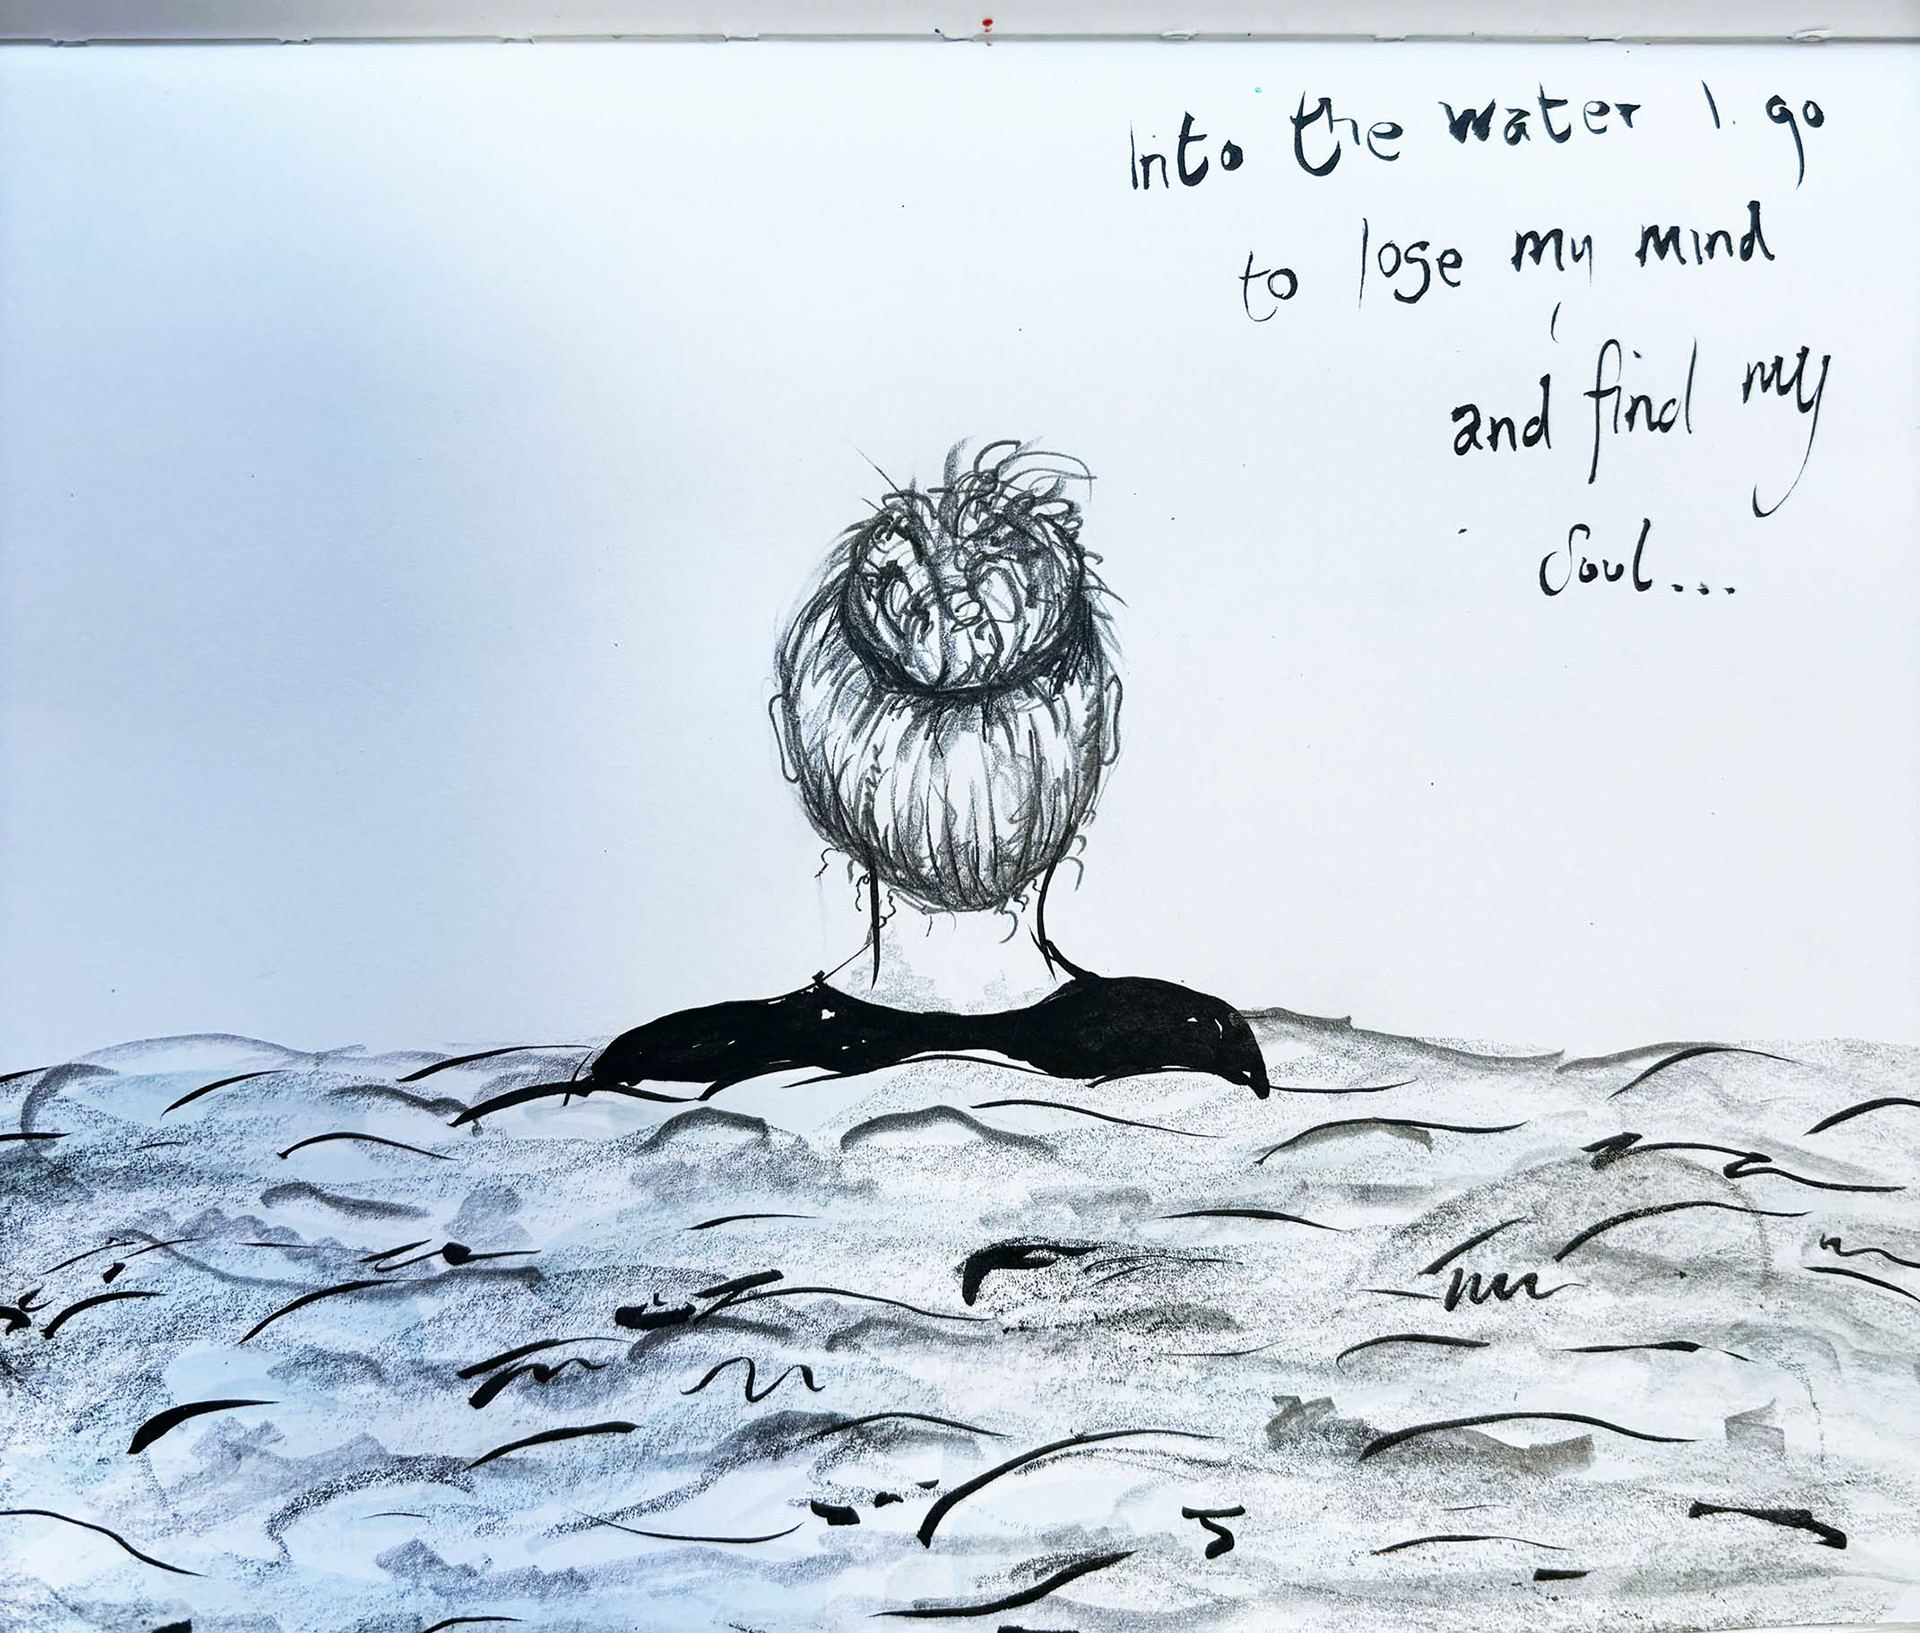 Into the water I go
to lose my mind
and find my
soul...